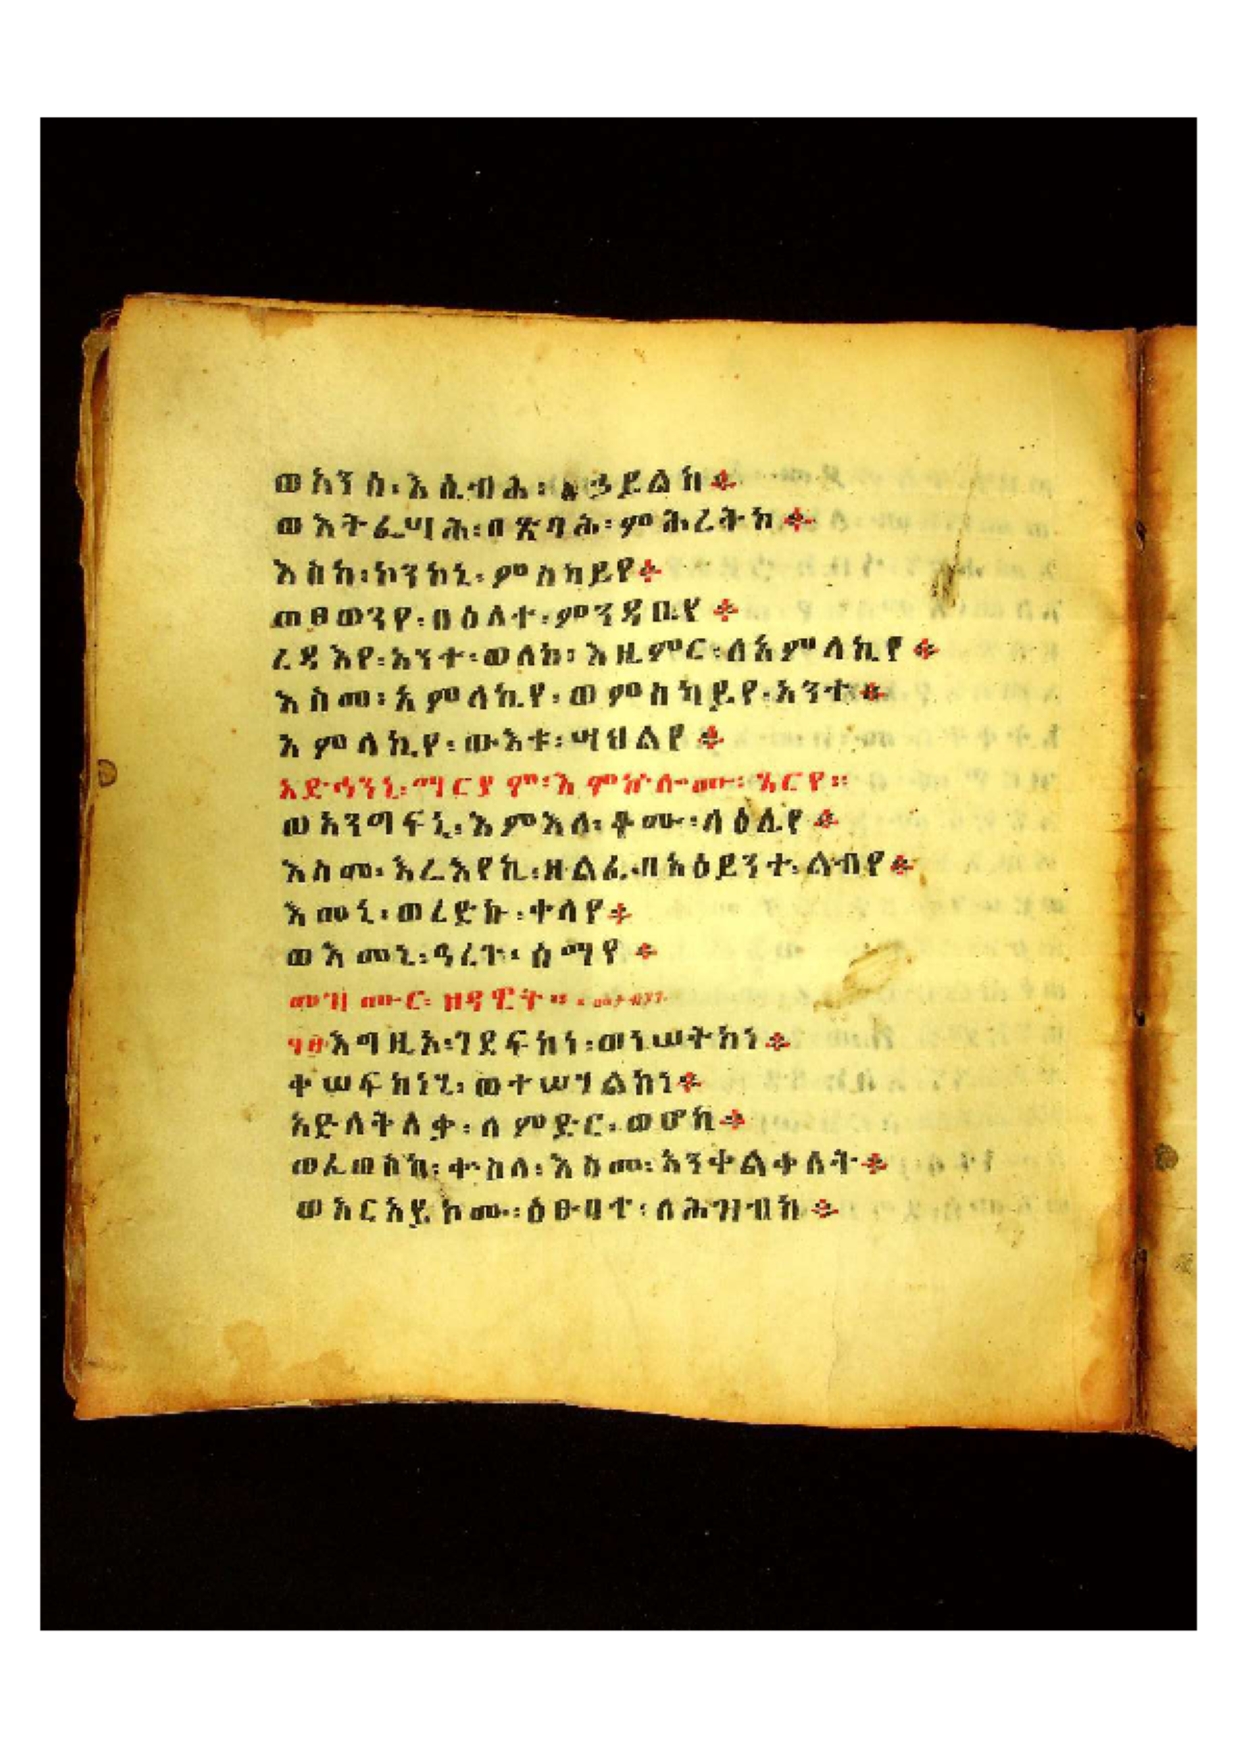 ወአንሰ፡እሴብሕ፡ለኃይልከ፨
ወእትፌሣሕ፡በጽባሕ፡ምሕረትከ፨
እስከ፡ኮንከኒ፡ምስካይየ፨
ወፀወንየ፡በዕለተ፡ምንዳቤየ፨
ረዳእየ፡አንተ፡ወለከ፡እዜምር፡ለአምላኪየ፨
እስመ፡አምላኪየ፡ወምስካይየ፡አንተ፨
አምላኪየ፡ውእቱ፡ሣህልየ፨
አድኅንኒ፡ማርያም፡እምኵሎሙ፡ኄርየ።
ወአንግፍኒ፡እምእለ፡ቆሙ፡ላዕሌየ፨
እስመ፡እሬእየኪ፡ዘልፈ፡በአዕይንተ፡ልብየ፨
እመኒ፡ወረድኩ፡ቀላየ፨
ወእመኒ፡ዓረጉ፡ሰማየ፨
መዝሙር፡ዘዳዊት።
፶፱እግዚአ፡ገደፍከነ፡ወነሠትከነ፨
ቀሠፍከነኒ፡ወተሠሃልከነ፨
አድለቅለቃ፡ለምድር፡ወሆከ፨
ወፈወስከ፡ቍስለ፡እስመ፡አንቀልቀለት፨
ወአርአይኮሙ፡ዕፁባተ፡ለሕዝብከ፨